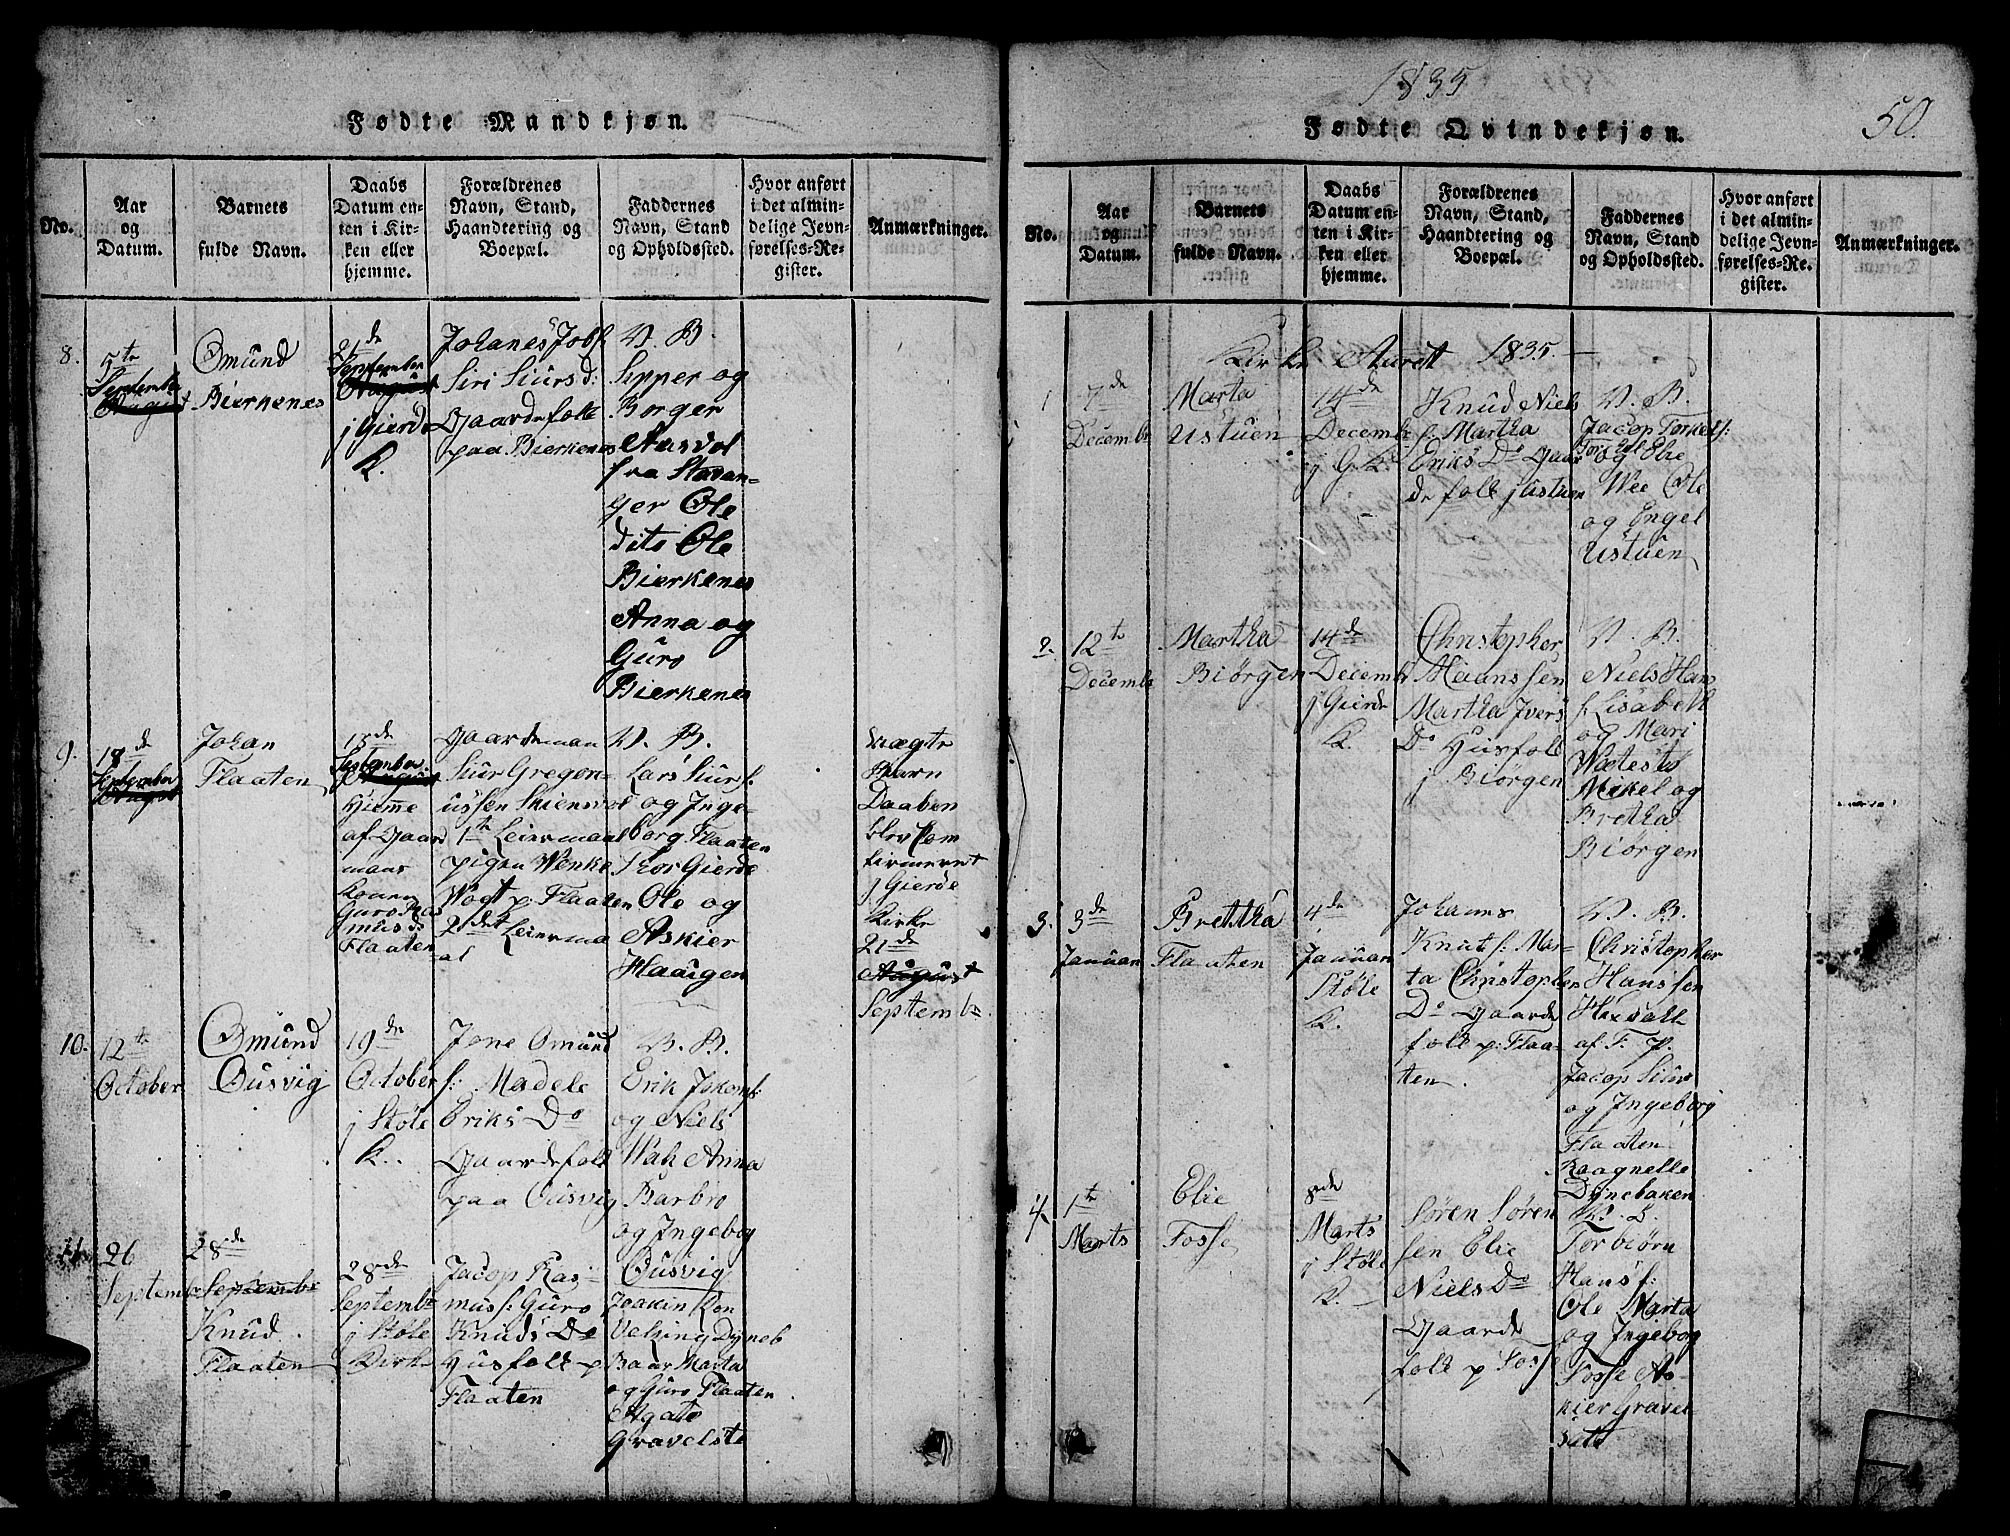 Fødte Mandkjøn.
No.
Aar
og
Datum.
Barnets
fulde Navn.
Daabs
Datum en-
ten i Kir-
ken eller
hjemme.
Forældrenes
Navn, Stand,
Haandtering og
Boepæl.
Faddernes
Navn, Stand
og Opholdssted.
Hvor anført
i det almin-
delige Jevn-
førelses-Re-
gister.
Anmærkninger.
8.
5te
September
August
Omund
Bierkenes
21de
September
August
j Gierde
K.
Johanes Jobs
Siri Siursd:
Gaardefolk
paa Bierkenes
V. B.
Sepper og
Borger
Aasvol
fra Stavan-
ger Ole
dito Ole
Bierkenes
Anna og
Guro
Bierkenes
9.
18de
September
August
Johan
Flaaten
September
August
Hjemme
af Gaard
mans
konen
Guro Ras
musd:
Flaaten
Gaardeman
Siur Gregori-
ussen Skiensvol
1te Leiermaal
pigen Wenke
Wogt p. Flaaten
2det Leierma
al
V. B.
Lars Siurs:
og Inge-
borg Flaaten
Thor Gierde
Ole og
Askier
Haaigen
Uægte
Barn
Daaben
blev Com
firmeret
j Gierde
Kirke
21de
August
Septembr
10.
12te
October
Omund
Ousvig
19de
October
j Støle
K.
Jone Omund
s: Madele
Eriks Do
Gaardefolk
paa Ousvig
V. B.
Erik Johans:
og Niels
Wah Anna
Barbro
og Ingebog
Ousvig
11.
26
Septembr
28de
Septembr
Knud
Flaaten
28de
Septembr
j Støle
Kirke
Jacop Ras-
mus s: Guro
Knuds Do
Husfolk p
Flaaten
Joakin Kon
Velsing Dyneb
Baar Marta
og Guro Flaaten
Agate
Gravelste
1835
50.
Fødte Qvindekjøn.
No.
Aar
og
Datum.
Barnets
fulde Navn.
Daabs
Datum en-
ten i Kir-
ken eller
hjemme.
Forældrenes
Navn, Stand,
Haandtering og
Boepæl.
Faddernes
Navn, Stand
og Opholdssted.
Hvor anført
i det almin-
delige Jevn-
førelses-Re-
gister.
Anmærkninger.
Kirke Aaret 1835.
1
7de
Decembr
Marta
Ustuen
14de
Decembr
j G. K.
Knud Niels
s. Martha
Eriks Do Gaar
de folk j Ustuen
V. B.
Jacop Torkels:
og Elie
Wee Ole
og Engel
Ustuen
2.
12te
Decembr
Martha
Biørgen
14de
Decembr
j Gierde
K.
Christopher
Maanssen
Martha Ivers
Do Husfolk
j Biørgen
V. B.
Niels Hans
s. Lisabeth
og Mari
Wateste
Mikel og
Bretha
Biørgen
3.
3de
Januari
Brettha
Flaaten
4de
Januari
Støle
K.
Johanes
Knuts: Mar-
ta Christopher
Do Gaarde
folk p: Flaa-
ten.
V. B.
Christopher
Hanssen
af T. P.
Jacop Siur
og Ingeborg
Flaaten
Raagnelle
Dynebaken
4.
1te
Marts
Elie
Fosse
8de
Marts
j Støle
K.
Søren Søren
sen Elie
Niels Do
Gaarde
folk p Fosse
V. B.
Torbiørn
Hans s:
Ole Marta
og Ingebog
Fosse As-
kier Gravel
sæte